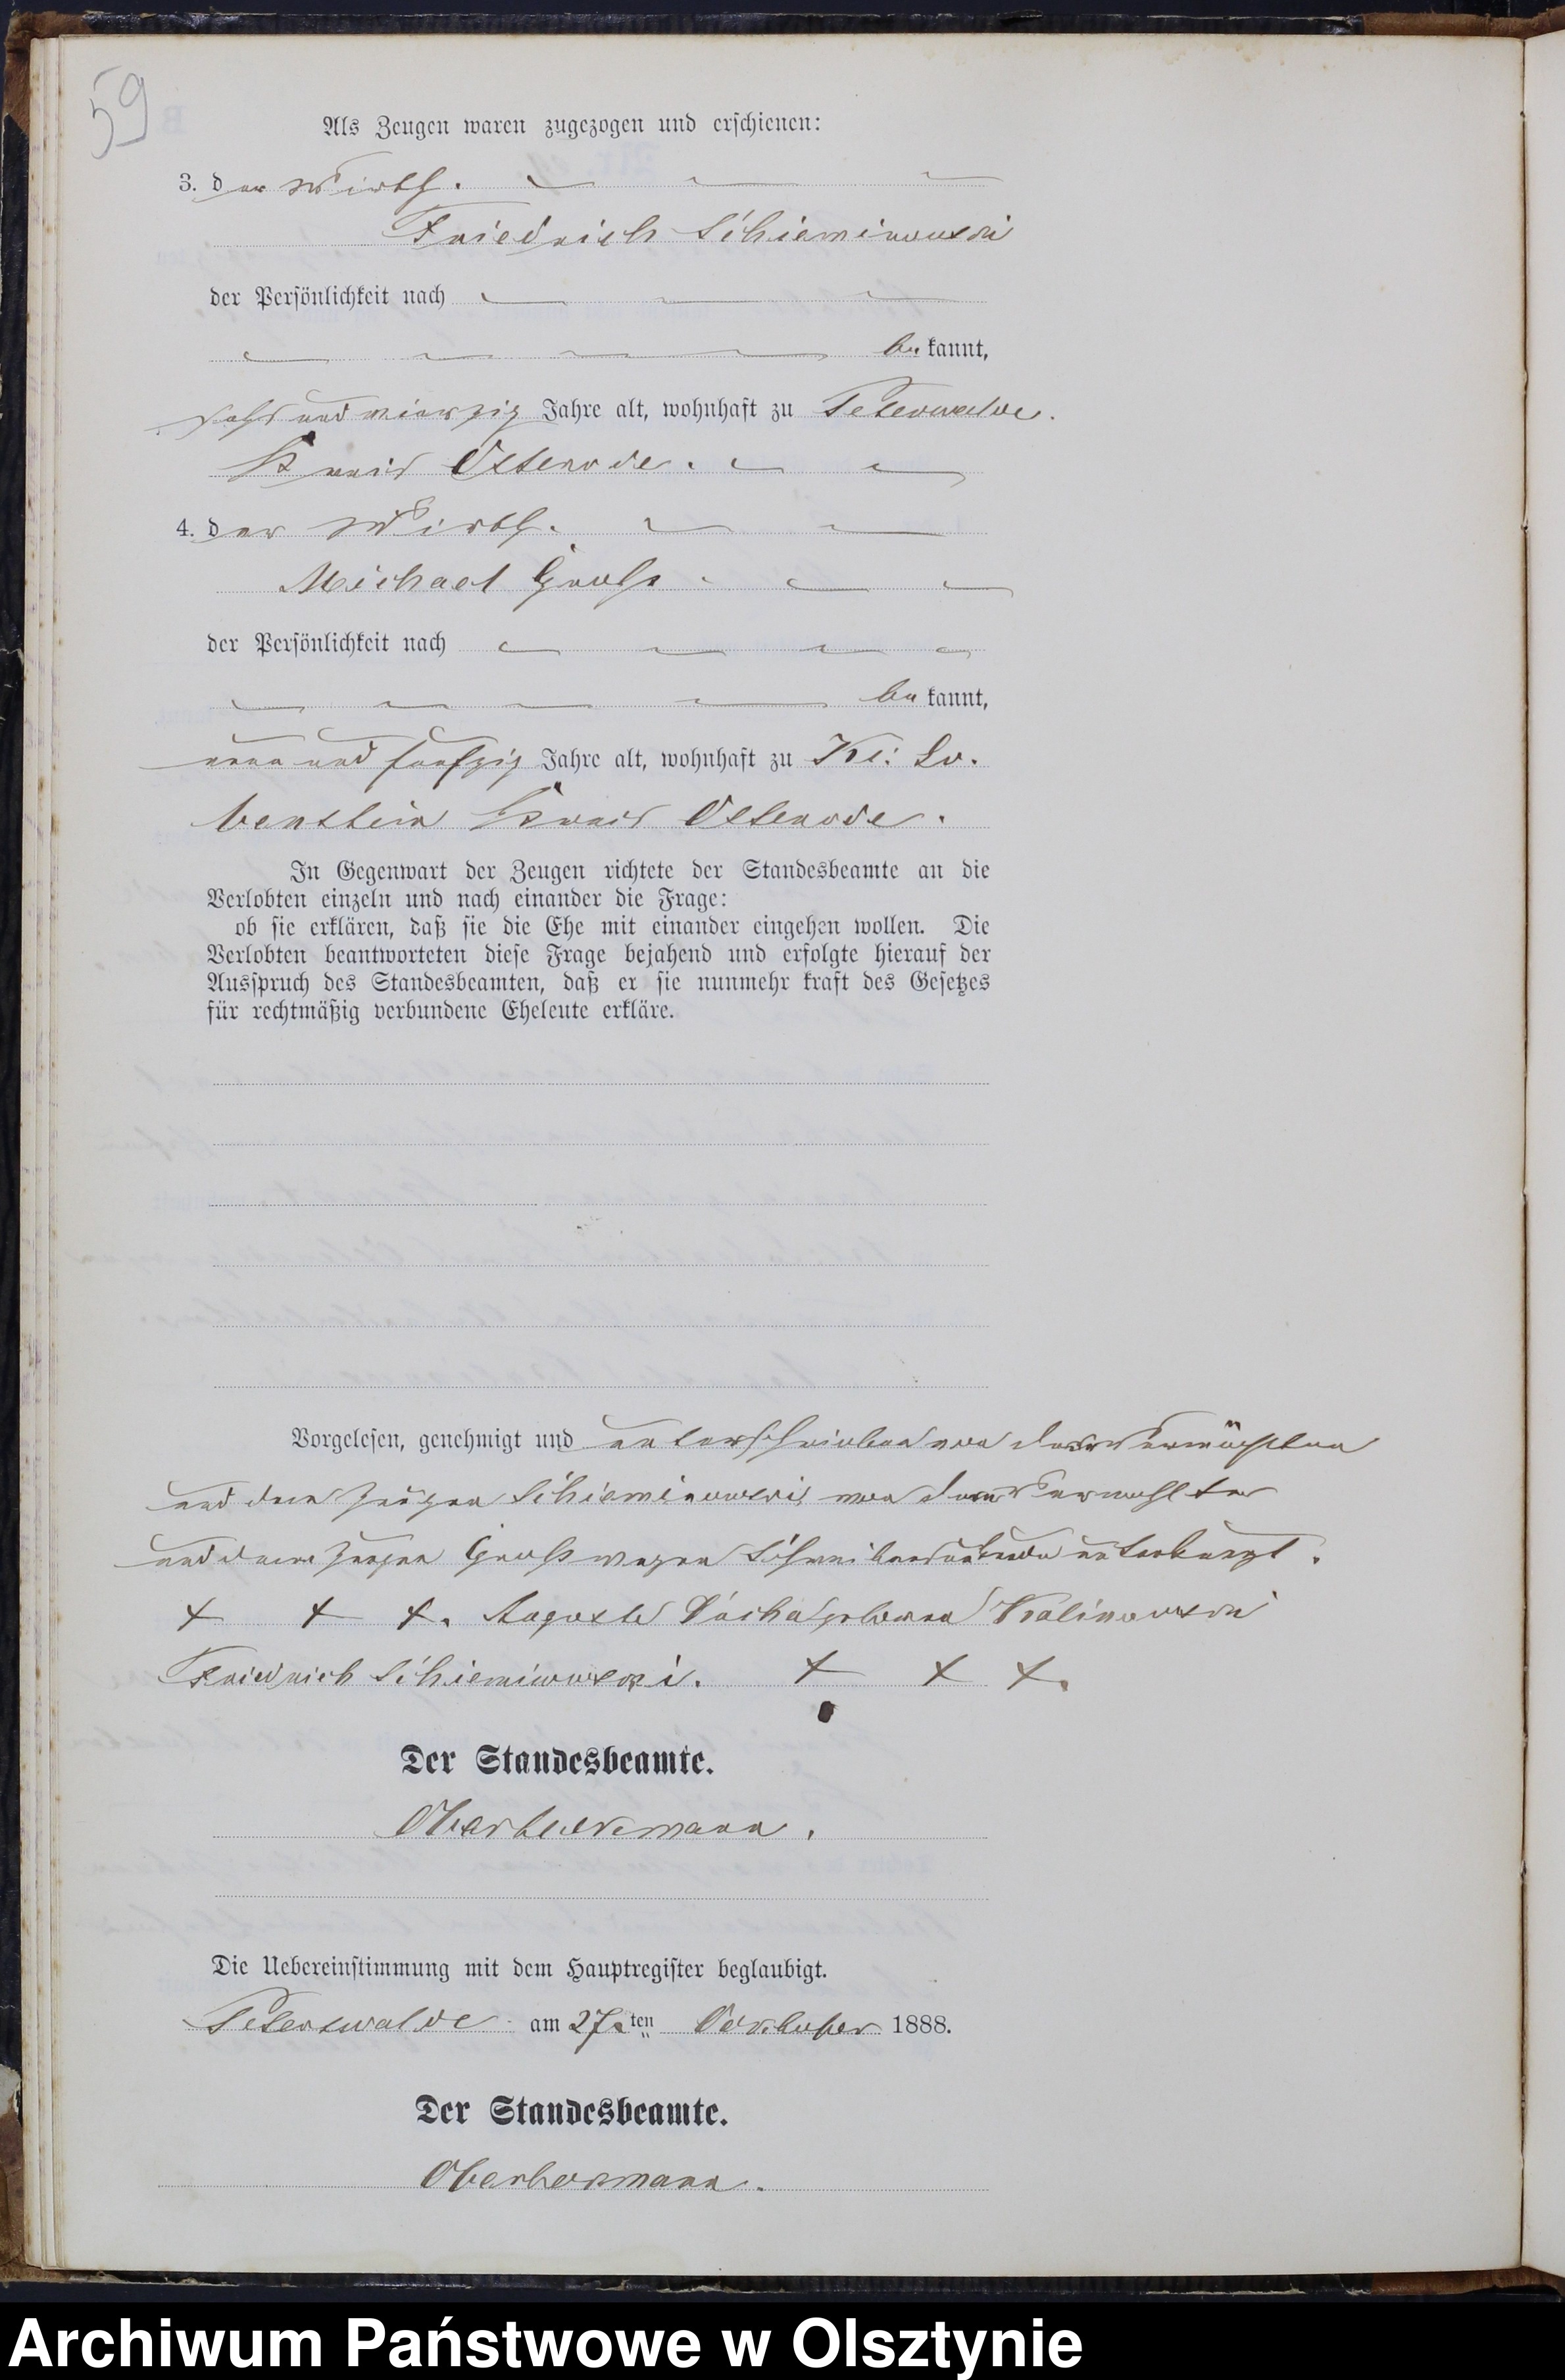 59
Als Zeugen waren zugezogen und erschienen:
3. der Wirth.
Friedrich Schieminowski
der Persönlichkeit nach
be kannt,
sechs und vierzig Jahre alt, wohnhaft zu Peterswalde.
Kreis Osterode.
4. der Wirth.
Michael Gross
der Persönlichkeit nach
be kannt,
neun und fünfzig Jahre alt, wohnhaft zu Kl: Lo-
benstein Kreis Osterode.
In Gegenwart der Zeugen richtete der Standesbeamte an die
Verlobten einzeln und nach einander die Frage:
ob sie erklären, daß sie die Ehe mit einander eingehen wollen. Die
Verlobten beantworteten diese Frage bejahend und erfolgte hierauf der
Ausspruch des Standesbeamten, daß er sie nunmehr kraft des Gesetzes
für rechtmäßig verbundene Eheleute erkläre.
Vorgelesen, genehmigt und unterschrieben von der Vermählten
und dem Zeugen Schieminowski, von dem Vermählten
und dem Zeugen Gross wegen Schreibensunkunde unterkreuzt.
+ + +. Auguste geborne Kalinowski
Friedrich Schieminowski. + + +.
Der Standesbeamte.
Die Uebereinstimmung mit dem Hauptregister beglaubigt.
Peterswalde am 27.ten October 1888.
Der Standesbeamte.
Archiwum Państwowe w Olsztynie